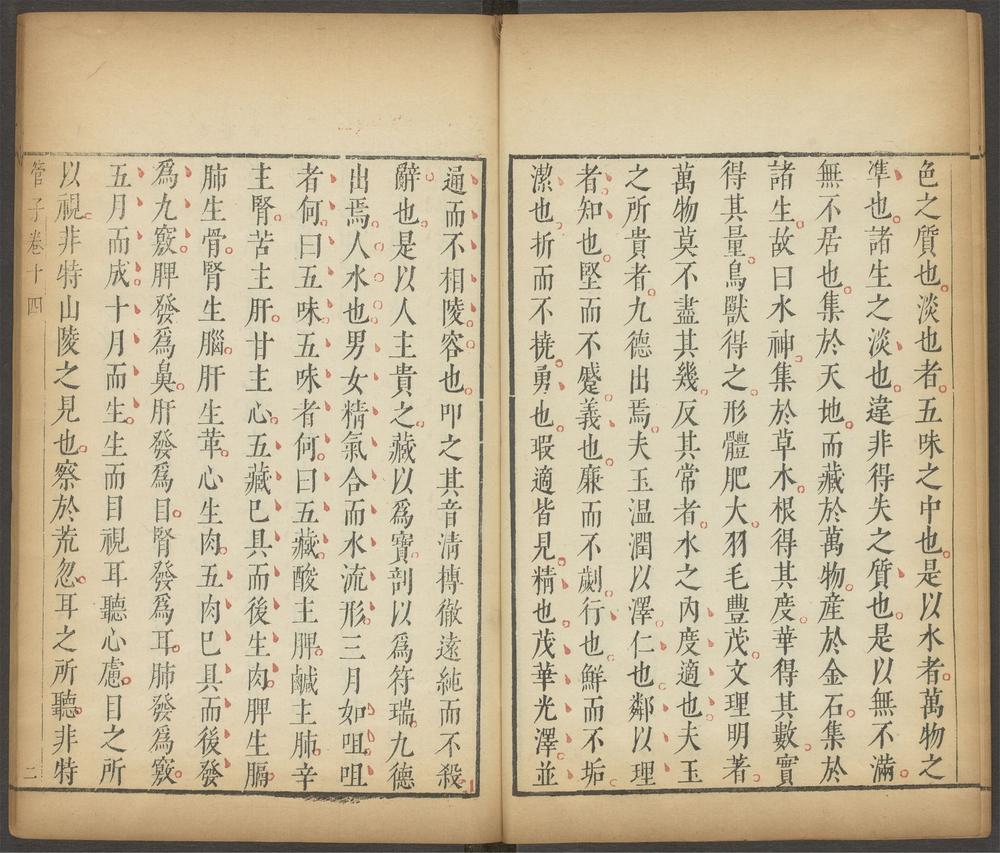 色之質也淡也者五味之中也是以水者萬物之
準也諸生之淡也違非得失之質也是以無不滿
無不居也集於天地而藏於萬物產於金石集於
諸生故曰水神集於草木根得其度華得其數實
得其量鳥獸得之形體肥大羽毛豐茂文理明著
萬物莫不盡其幾反其常者水之內度適也夫玉
之所貴者九德出焉夫玉温潤以澤仁也鄰以理
者知也堅而不蹙義也廉而不劌行也鮮而不垢
潔也折而不橈勇也瑕適皆見精也茂華光澤並
通而不相陵容也叩之其音清摶徹遠純而不殺
辭也是以人主貴之藏以爲寶剖以爲符瑞九德
出焉人水也男女精氣合而水流形三月如咀咀
者何曰五味五味者何曰五藏酸主脾鹹主肺辛
主腎苦主肝甘主心五藏已具而後生肉脾生膈
肺生骨腎生腦肝生革心生肉五肉已具而後發
爲九竅脾發爲鼻肝發爲目腎發爲耳肺發爲竅
五月而成十月而生生而目視耳聽心慮目之所
以視非特山陵之見也察於荒忽耳之所聽非特
管子卷十四 二